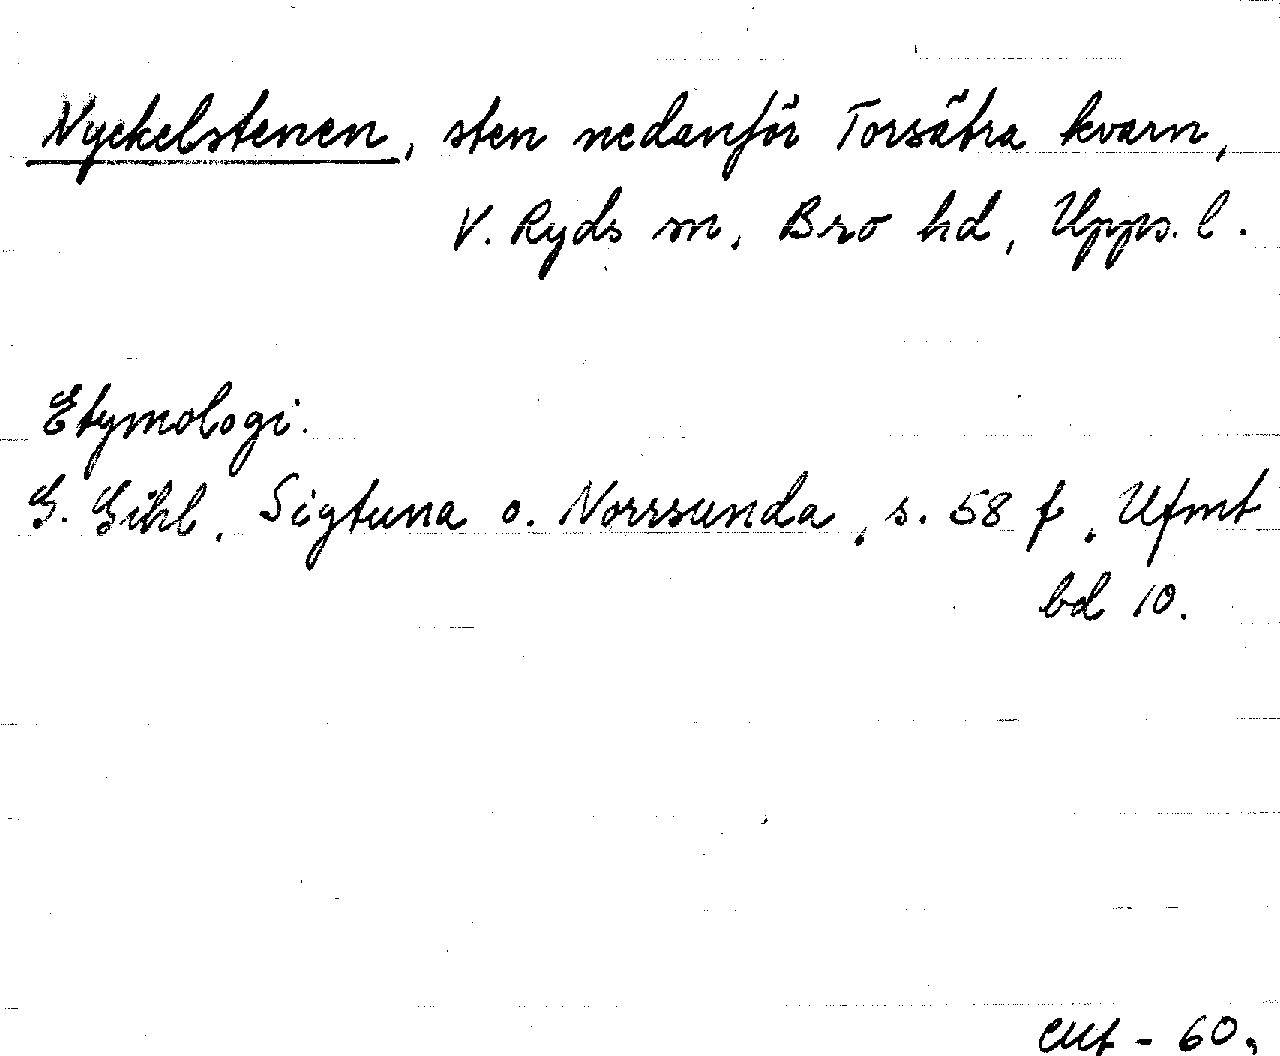 Nyckelstenen, sten nedanför Torsätra kvarn,
V. Ryds sn, Bro hd, Upps. l.
Etymologi.
G. Gihl, Sigtuna o. Norrsunda, s. 58 f, Ufmt
bd 10.
- 60.